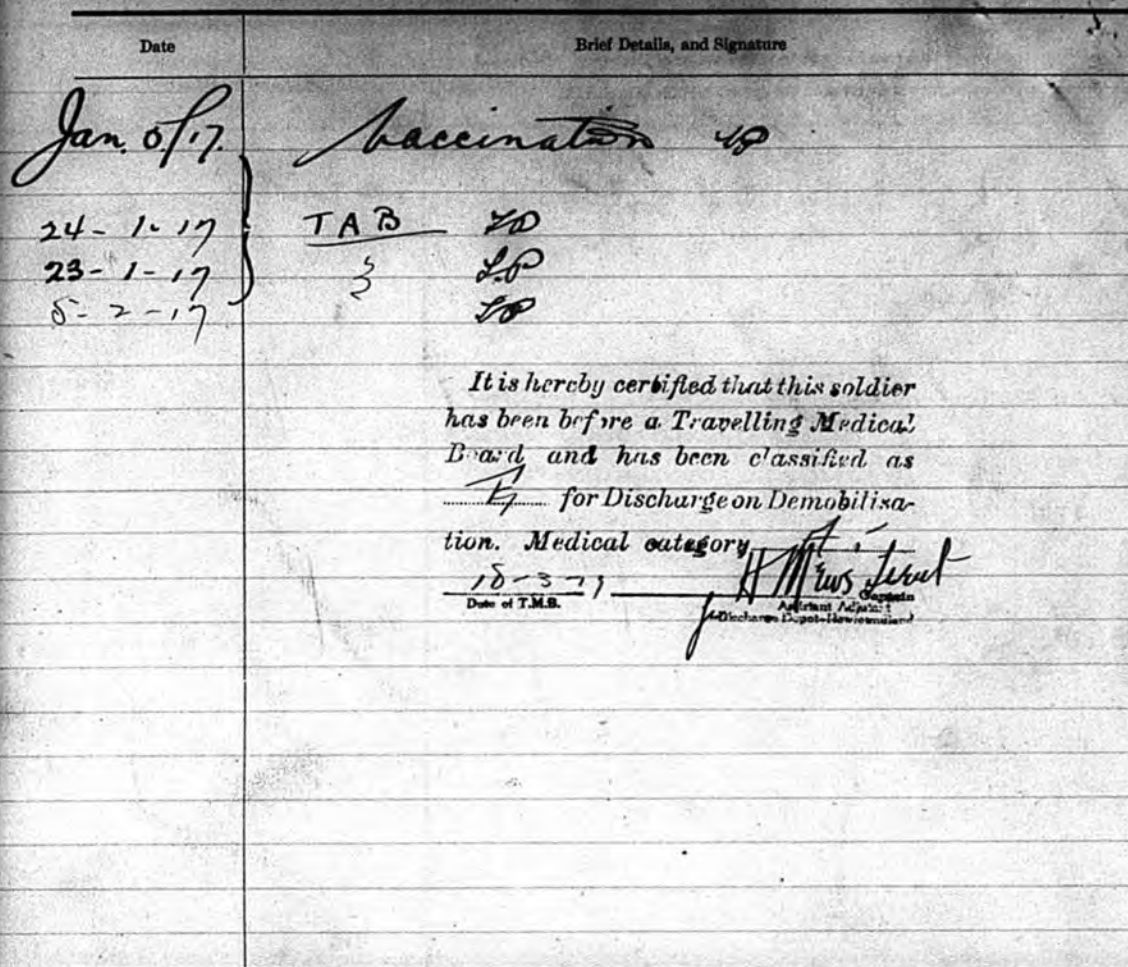 Date Brief Details, and Signature
Jan. 5/17. Vaccination LP
24-1-17 TAB LP
23-1-17 LP
5-2-17 LP
It is hereby certified that this soldier
has been before a Travelling Medical
Board and has been classified as
for Discharge on Demobilisa-
tion. Medical category
18-3-19 H Mews Lieut
Captain
Date of T.M.B. Assistant Adjutant
Discharge Depot-Newfoundland